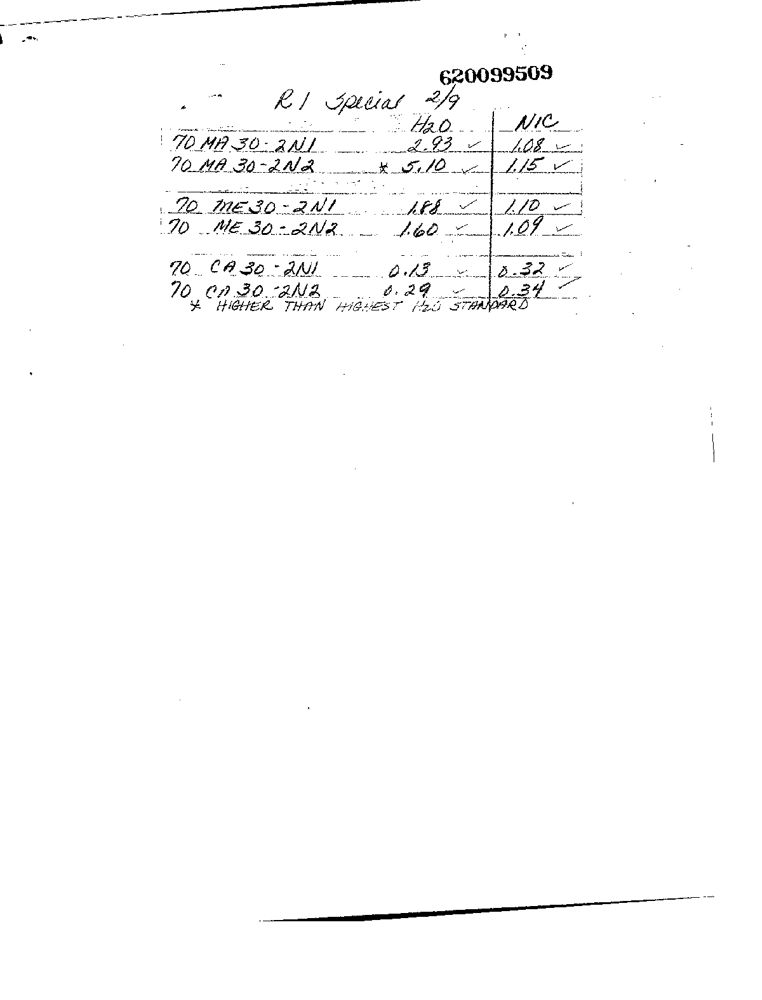 620099509
R1 Special 2/9
H2O NIC
70 MA 30-2N1 2.93 ✓ 1.08 ✓
70 MA 30-2N2 * 5.10 ✓ 1.15 ✓
70 ME 30-2N1 1.88 ✓ 1.10 ✓
70 ME 30-2N2 1.60 ✓ 1.09 ✓
70 CA 30-2N1 0.13 ✓ 0.32 ✓
70 CA 30-2N2 0.29 ✓ 0.34 ✓
* HIGHER THAN HIGHEST H2O STANDARD